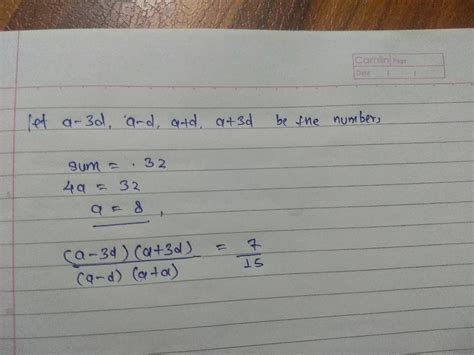 Camlin Page
Date / /
let a-3d, a-d, a+d, a+3d be the numbers
sum = . 32
4a = 32
a = 8,
(a-3d)(a+3d) / (a-d)(a+d) = 7/15